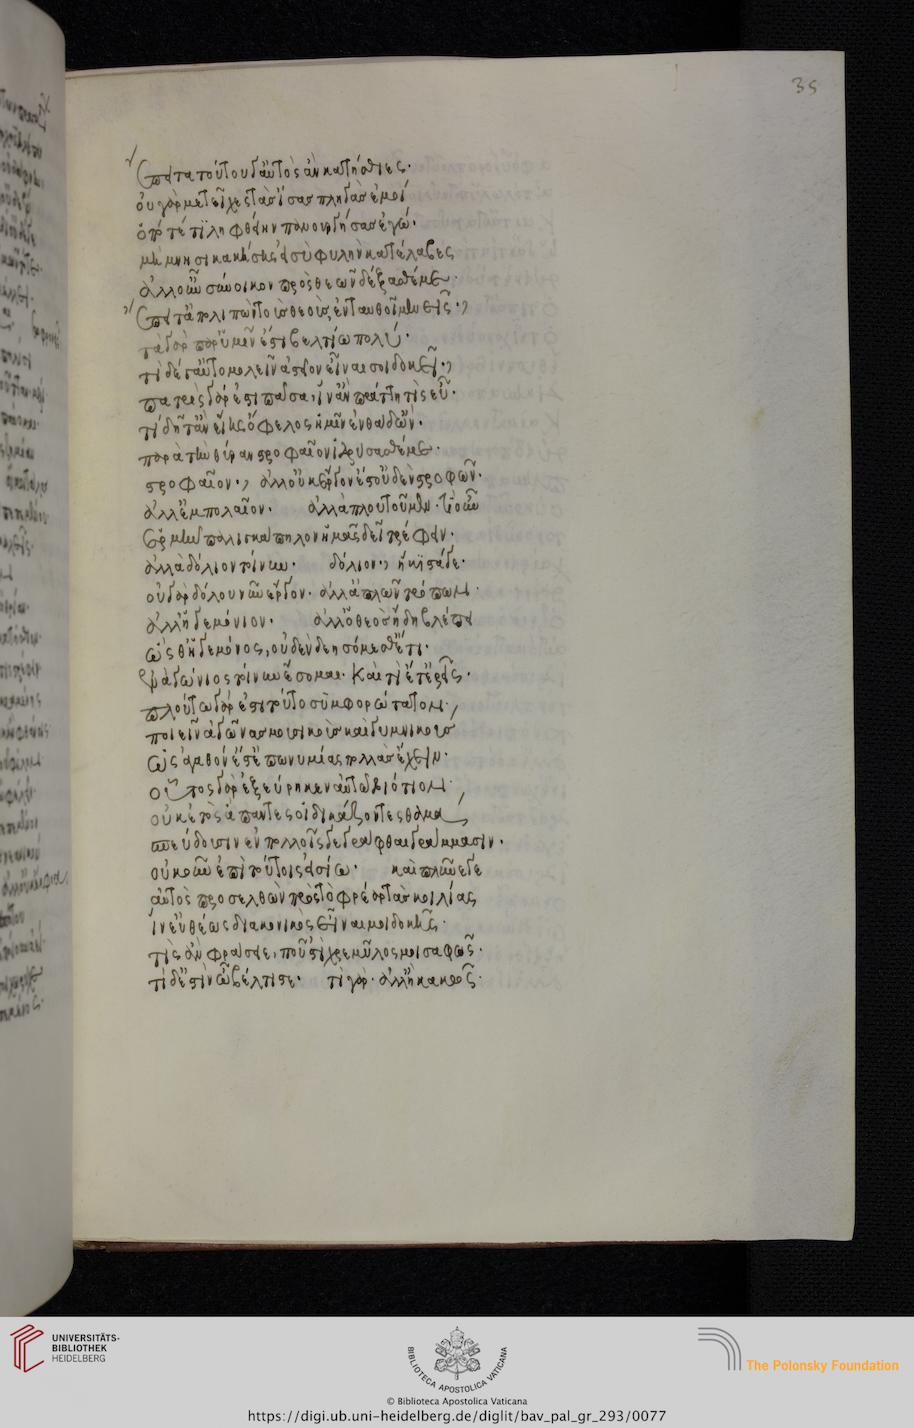 35
ἔπειτα τούτου γ' αὐτὸς ἂν κατήσθιες.
οὐ γὰρ μετεῖχες τὰς ἴσας πληγὰς ἐμοί
ὁπότε τι ληφθείην πανουργήσας ἐγώ.
μὴ μνησικακήσῃς εἰ σὺ φυλὴν κατέλαβες
ἀλλὰ ξύνοικον πρὸς θεῶν δέξασθέ με.
ἔπειτ' ἀπολιπὼν τοὺς θεοὺς ἐνταυθοῖ μενεῖς.
τὰ γὰρ παρ' ὑμῖν ἐστι βελτίω πολύ.
τί δέ ταὐτομολεῖν ἀστεῖον εἶναί σοι δοκεῖ.
πατρὶς γάρ ἐστι πᾶσα, ἵν' ἂν πράττῃ τις εὖ.
τί δῆτ' ἂν εἴης ὄφελος ἡμῖν ἐνθάδ' ὤν.
παρὰ τὴν θύραν στροφαῖον ἱδρύσασθέ με.
στροφαῖον. ἀλλ' οὐκ ἔργον ἔστ' οὐδὲν στροφῶν.
ἀλλ' ἐμπολαῖον. ἀλλὰ πλουτοῦμεν. τί οὖν
ἑρμῆν παλιγκάπηλον ἡμᾶς δεῖ τρέφειν.
ἀλλὰ δόλιον τοίνυν. δόλιον, ἥκιστά γε.
οὐ γὰρ δόλου νῦν ἔργον. ἀλλ' ἁπλῶν τρόπων.
ἀλλ' ἡγεμόνιον. ἀλλ' ὁ θεὸς ἤδη βλέπει
ὥσθ' ἡγεμόνος, οὐδὲν δεησόμεσθ' ἔτι.
ἐναγώνιος τοίνυν ἔσομαι. καὶ τί ἔτ' ἐρεῖς.
πλούτῳ γάρ ἐστι τοῦτο συμφορώτατον,
ποιεῖν ἀγῶνας μουσικοὺς καὶ γυμνικούς
ὡς ἀγαθόν ἐστ' ἐπωνυμίας πολλὰς ἔχειν.
οὗτος γὰρ ἐξεύρηκεν αὑτῷ βιότιον.
οὐκ ἐτὸς ἅπαντες οἱ δικάζοντες θάμα
σπεύδουσιν ἐν πολλοῖς γεγράφθαι γράμμασιν.
οὐκοῦν ἐπὶ τούτοις εἰσίω. καὶ πλῦνέ γε
αὐτὸς προσελθὼν πρὸς τὸ φρέαρ τὰς κοιλίας
ἵν' εὐθέως διακονικὸς εἶναί μοι δοκῇς.
τίς ἂν φράσειε, ποῦ 'στὶ χρεμύλος μοι σαφῶς.
τί δ' ἔστιν ὦ βέλτιστε. τί γάρ. ἀλλ' ἢ κακῶς.
UNIVERSITÄTS-
BIBLIOTHEK
HEIDELBERG
BIBLIOTECA APOSTOLICA VATICANA
The Polonsky Foundation
© Biblioteca Apostolica Vaticana
https://digi.ub.uni-heidelberg.de/diglit/bav_pal_gr_293/0077